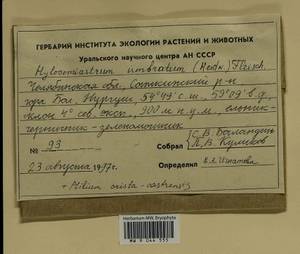 ГЕРБАРИЙ ИНСТИТУТА ЭКОЛОГИИ РАСТЕНИЙ И ЖИВОТНЫХ
Уральского научного центра АН СССР
Hylocomiastrum umbratum (Hedw.) Fleisch.
Челябинская обл. Саткинский р-н
гора Бол. Нургуш, 54°49' с.ш., 59°09' в.д.
склон 4° сев. эксп., 900 м н.у.м., ельник-
чернично-зеленомошник
№ 93
Собрал С.В. Баландин
П.В. Куликов
23 августа
Определил Игнатова
+ Ptilium crista-castrensis
Herbarium MW, Bryophyta